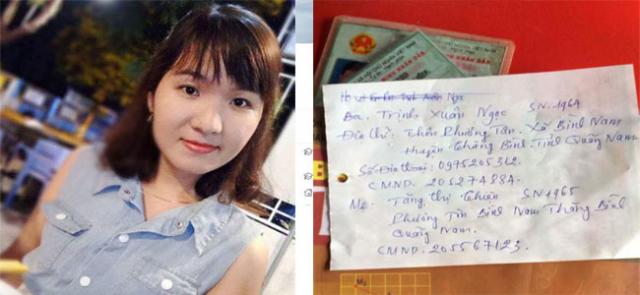 NHÂN DÂN
Ba. Trịnh Xuân Ngọc SN.1964
Địa chỉ: Thôn Phương Tân - Xã Bình Nam
Huyện: Thăng Bình - Tỉnh Quảng Nam
Số Điện thoại: 0975205312.
CMND. 205274884.
Mẹ. Tăng thị SN 1965
Phương Bình Nam Thăng Bình
Quảng Nam.
CMND. 205567123.